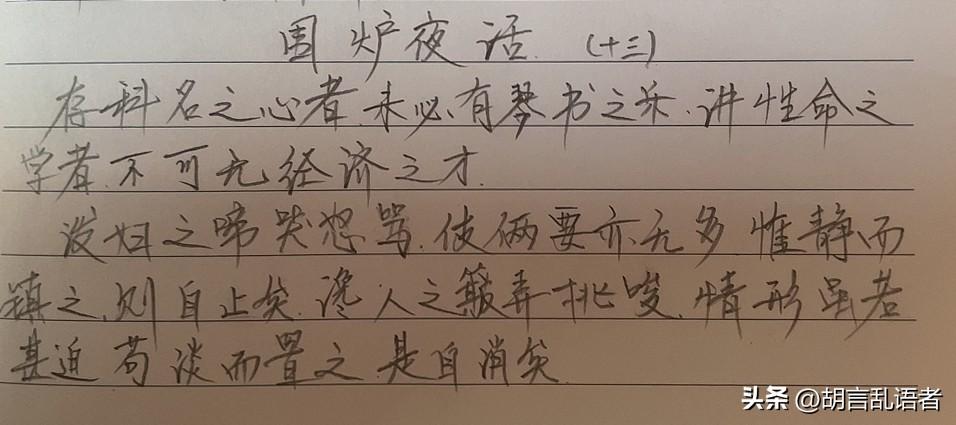 围炉夜话.(十三)
存科名之心者.未必有琴书之乐.讲性命之
学者.不可无经济之才.
泼妇之啼哭怒骂.伎俩要亦无多惟静而
镇之.则自止矣.谗人之簸弄挑唆.情形虽若
甚迫苟淡而置之是自消矣
头条@胡言乱语者